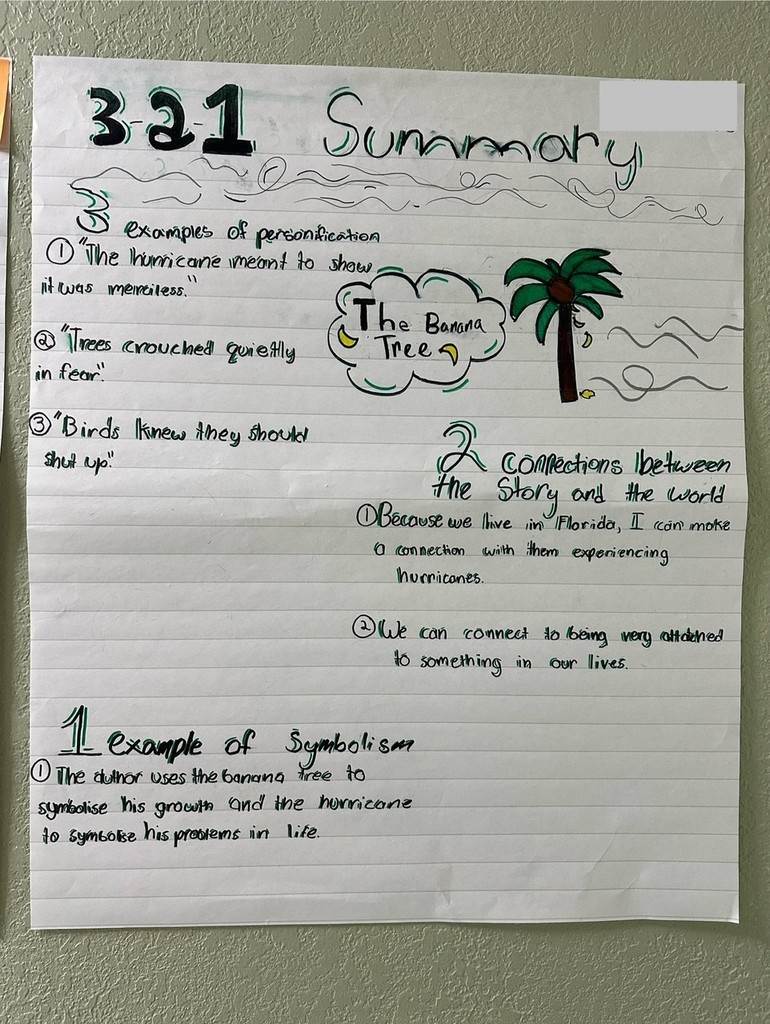 3-2-1 Summary
3 examples of personification
① "The hurricane meant to show
it was merciless."
② "Trees crouched quietly
in fear."
③ "Birds knew they should
shut up."
The Banana
Tree
2 Connections between
the Story and the world
① Because we live in Florida, I can make
a connection with them experiencing
hurricanes.
② We can connect to being very attached
to something in our lives.
1 example of Symbolism
① The author uses the banana tree to
symbolise his growth and the hurricane
to symbolise his problems in life.